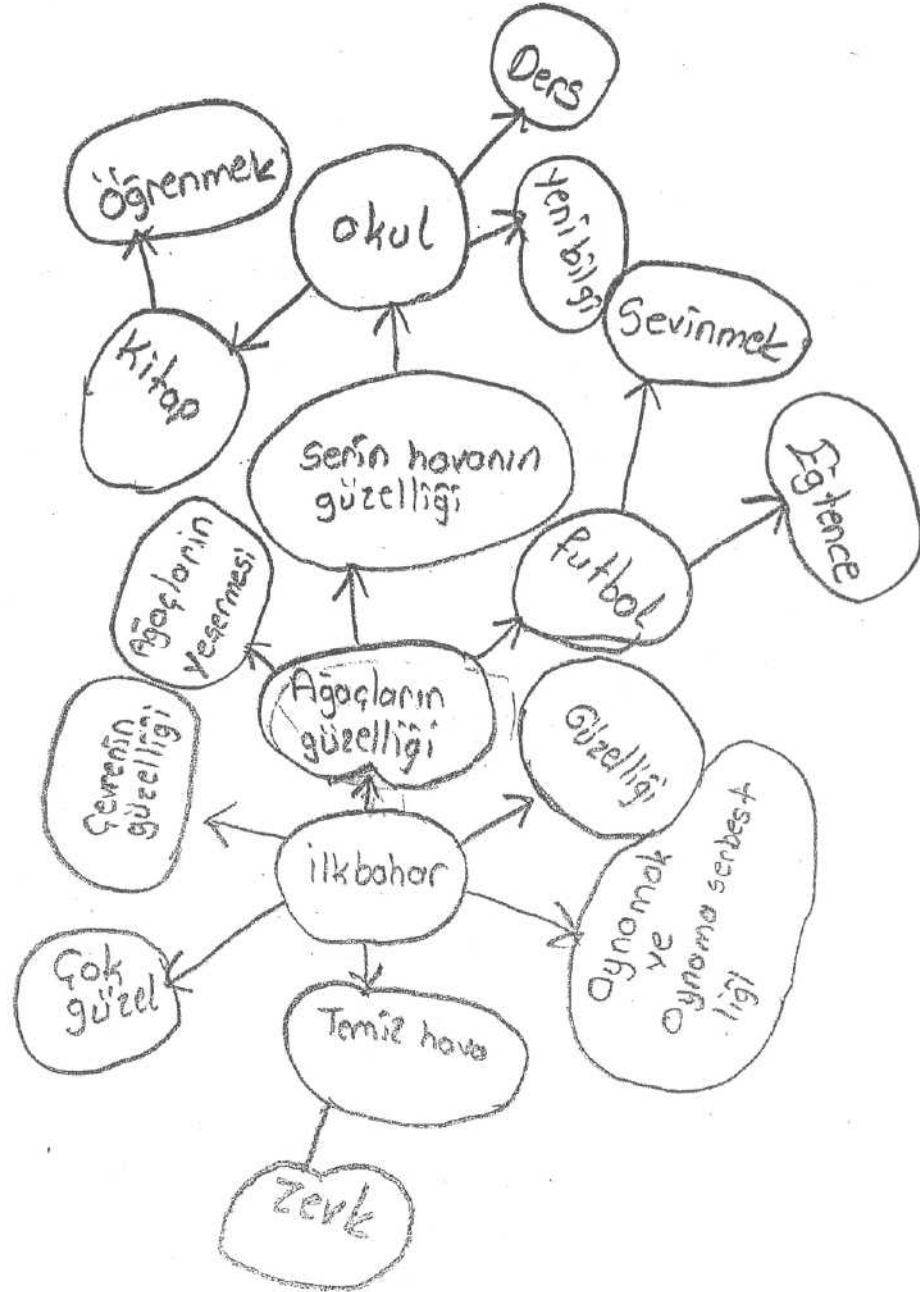 Ders
Öğrenmek
okul
yeni bilgi
Sevinmek
Kitap
Serin havanın
güzelliği
Eğlence
futbol
Ağaçların
yeşermesi
Ağaçların
güzelliği
Güzelliği
Çevrenin
güzelliği
ilkbahar
Oynamak
ve
Oynama serbest
liği
Çok
güzel
Temiz hava
Zevk